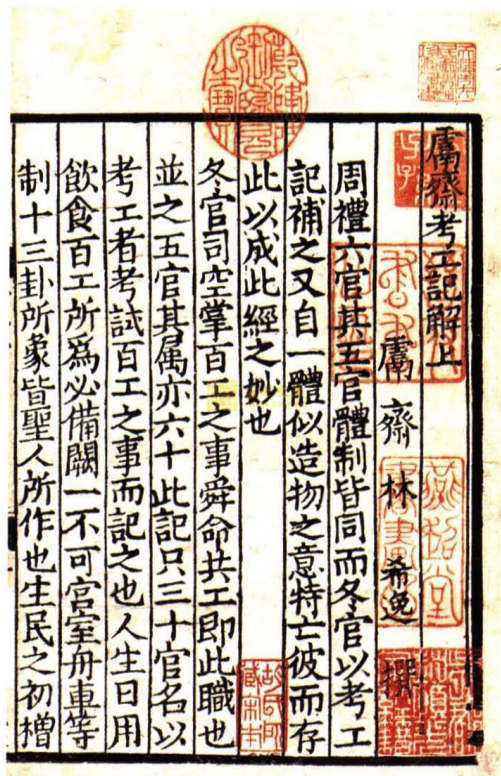 鬳齋考工記解上
鬳齋林希逸撰
周禮六官其五官體制皆同而冬官以考工
記補之又自一體似造物之意特亡彼而存
此以成此經之妙也
冬官司空掌百工之事舜命共工即此職也
並之五官其属亦六十此記只三十官名以
考工者考試百工之事而記之也人生日用
飲食百工所爲必備闕一不可宫室舟車等
制十三卦所象皆聖人所作也生民之初橧